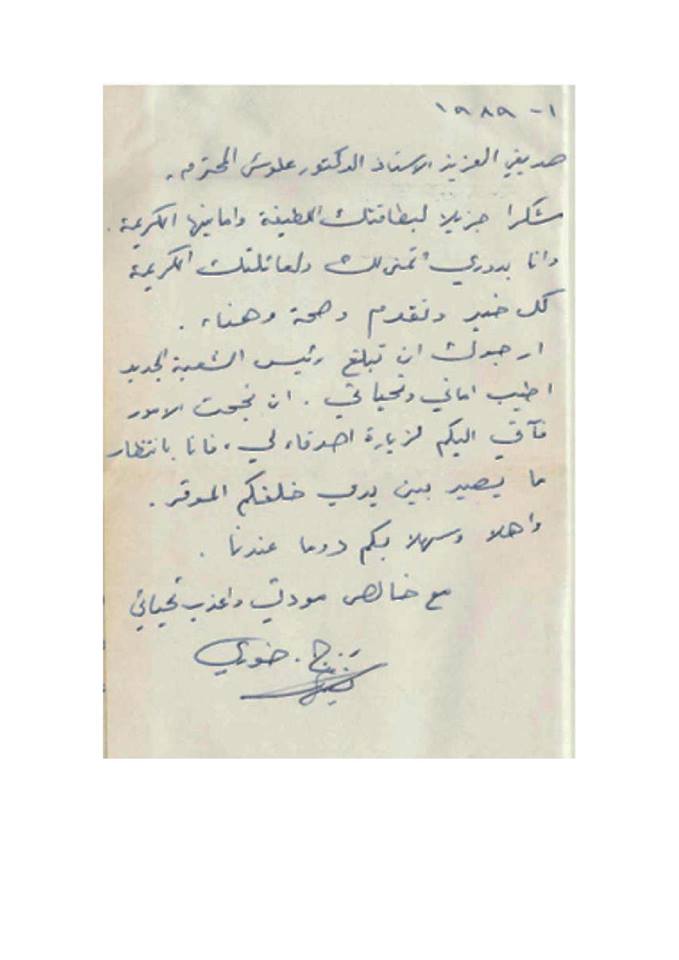 ١ - ١٩٨٩
صديقي العزيز الاستاذ الدكتور علوش المحترم .
شكرا جزيلا لبطاقتك اللطيفة وامانيها الكريمة .
وانا بدوري أتمنى لك ولعائلتك الكريمة
كل خير وتقدم وصحة وهناء .
ارجوك ان تبلغ رئيس الشعبة الجديد
اطيب اماني وتحياتي . ان نجحت الامور
فآتي اليكم لزيارة اصدقاء لي ، فانا بانتظار
ما يصير بين يدي خلفكم الموقر .
واهلا وسهلا بكم دوما عندنا .
مع خالص مودتي واعذب تحياتي
خوري